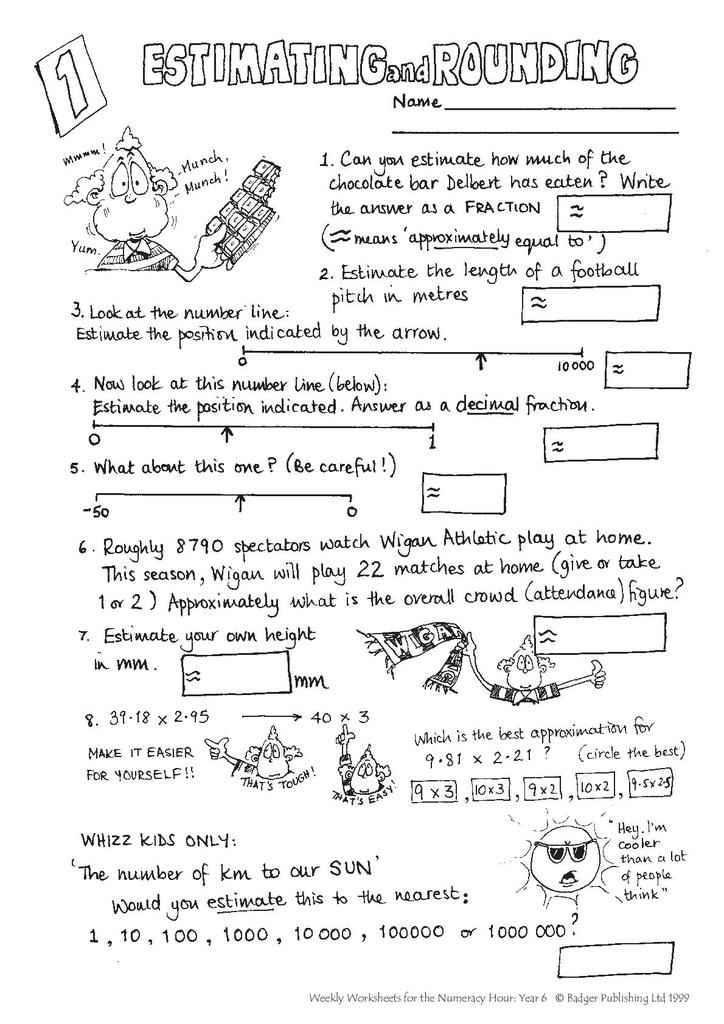 1
ESTIMATING and ROUNDING
Name
Mmmm!
Munch,
Munch!
Yum.
1. Can you estimate how much of the
chocolate bar Delbert has eaten? Write
the answer as a FRACTION ≈
(≈ means 'approximately equal to')
2. Estimate the length of a football
pitch in metres ≈
3. Look at the number line:
Estimate the position indicated by the arrow.
0 10000 ≈
4. Now look at this number line (below):
Estimate the position indicated. Answer as a decimal fraction.
0 1 ≈
5. What about this one? (Be careful!) ≈
-50 0
6. Roughly 8790 spectators watch Wigan Athletic play at home.
This season, Wigan will play 22 matches at home (give or take
1 or 2) Approximately what is the overall crowd (attendance) figure?
≈
7. Estimate your own height
in mm. ≈ mm
WIGA
8. 39·18 x 2·95 → 40 x 3
MAKE IT EASIER
FOR YOURSELF!!
THAT'S TOUGH!
THAT'S EASY!
Which is the best approximation for
9·81 x 2·21 ? (circle the best)
9 x 3, 10x3, 9x2, 10x2, 9·5x2·5
WHIZZ KIDS ONLY:
'The number of km to our SUN'
Would you estimate this to the nearest:
1, 10, 100, 1000, 10 000, 100000 or 1000 000?
"Hey, I'm
cooler
than a lot
of people
think"
Weekly Worksheets for the Numeracy Hour: Year 6 © Badger Publishing Ltd 1999